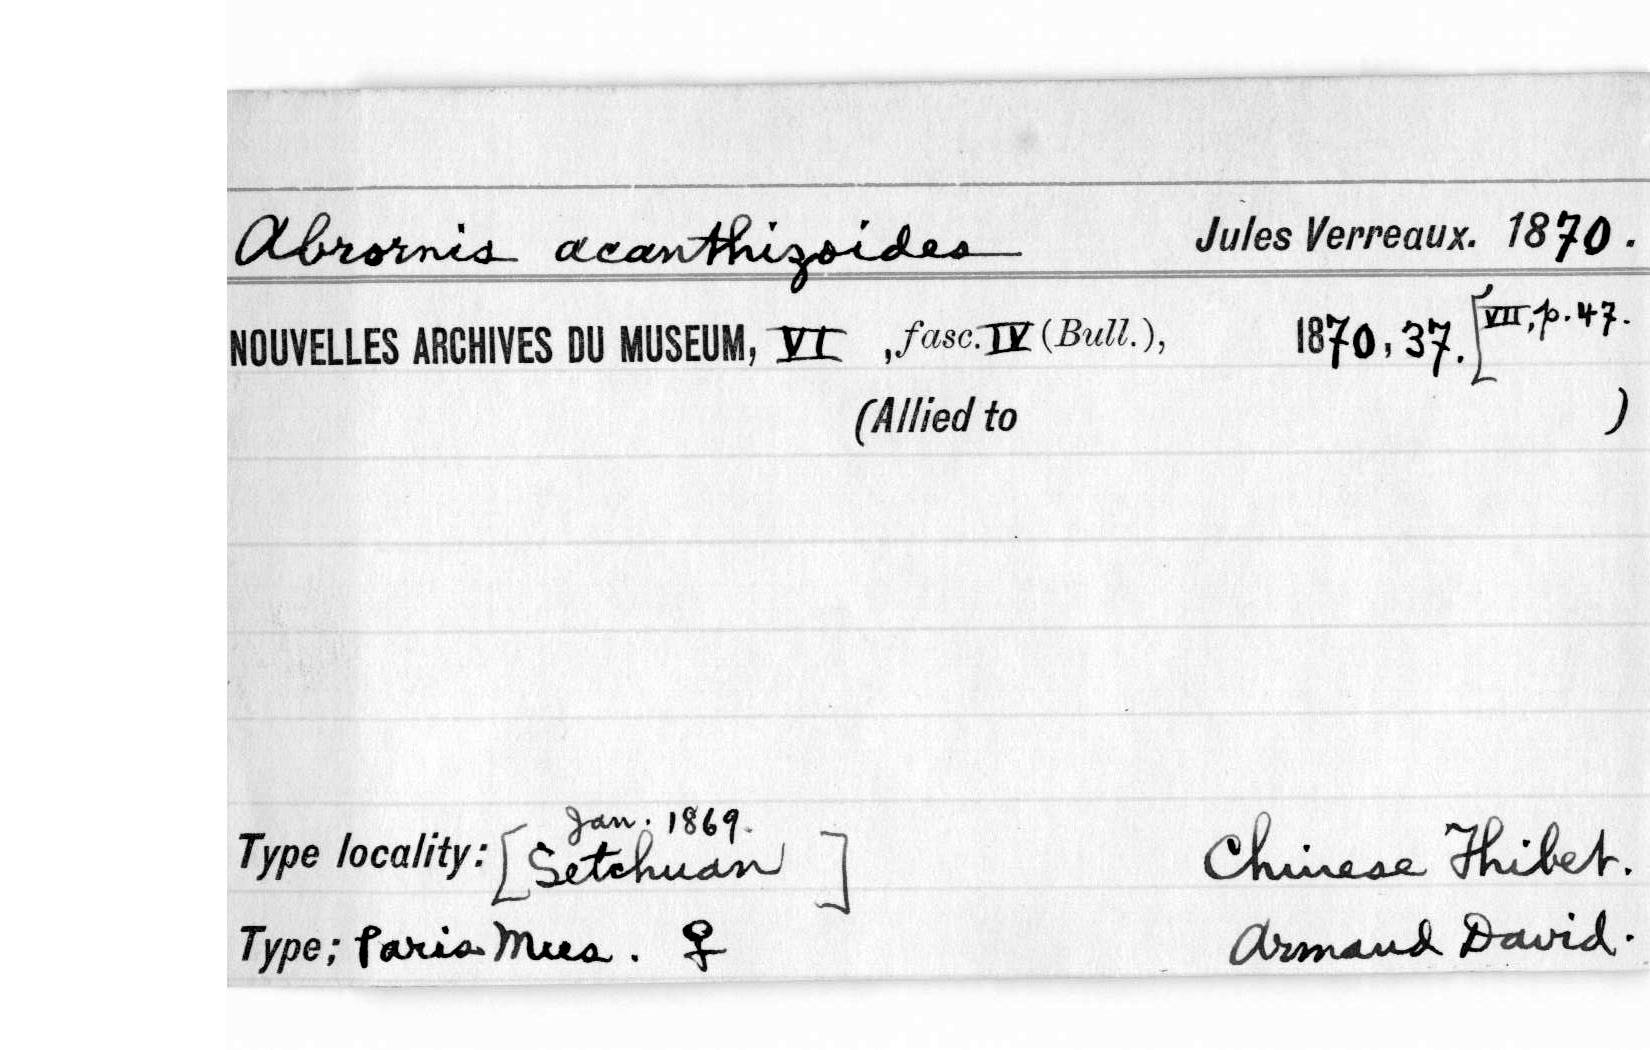 Abrornis acanthizoides Jules Verreaux. 1870.
NOUVELLES ARCHIVES DU MUSEUM, VI , fasc. IV (Bull.), 1870, 37. [VII, p. 47.
(Allied to )
Jan. 1869.
Type locality: [Setchuan] Chinese Thibet.
Type; Paris Mus. ♀ Armand David.